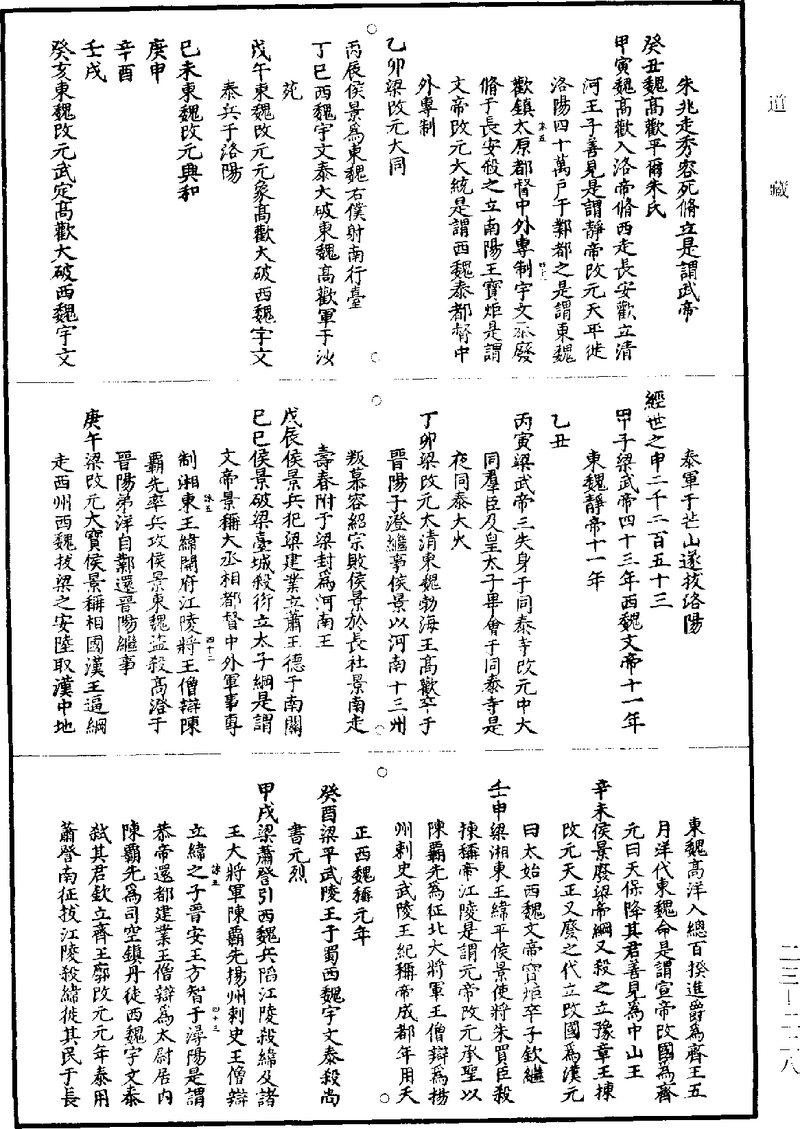 道藏
朱兆走秀容死脩立是謂武帝
癸丑魏高歡平爾朱氏
甲寅魏高歡入洛帝脩西走長安歡立清
河王子善見是謂靜帝改元天平徙
洛陽四十萬戶于鄴都之是謂東魏
歡鎮太原都督中外專制宇文泰廢
脩于長安殺之立南陽王寶炬是謂
文帝改元大統是謂西魏泰都督中
外專制
乙卯梁改元大同
丙辰侯景爲東魏右僕射南行臺
丁巳西魏宇文泰大破東魏高歡軍于沙
苑
戊午東魏改元元象高歡大破西魏宇文
泰兵于洛陽
己未東魏改元興和
庚申
辛酉
壬戌
癸亥東魏改元武定高歡大破西魏宇文
泰軍于芒山遂拔洛陽
經世之申二千二百五十三
甲子梁武帝四十三年西魏文帝十一年
東魏靜帝十一年
乙丑
丙寅梁武帝三失身于同泰寺改元中大
同羣臣及皇太子畢會于同泰寺是
夜同泰大火
丁卯梁改元太清東魏勃海王高歡卒于
晉陽子澄繼事侯景以河南十三州
叛慕容紹宗敗侯景於長社景南走
壽春附于梁封爲河南王
戊辰侯景兵犯梁建業立蕭王德于南闕
己巳侯景破梁臺城殺衍立太子綱是謂
文帝景稱大丞相都督中外軍事專
制湘東王繹開府江陵將王僧辯陳
霸先率兵攻侯景東魏盜殺高澄于
晉陽弟洋自鄴還晉陽繼事
庚午梁改元大寶侯景稱相國漢王逼綱
走西州西魏拔梁之安陸取漢中地
東魏高洋入總百揆進爵爲齊王五
月洋代東魏命是謂宣帝改國爲齊
元曰天保降其君善見爲中山王
辛未侯景廢梁帝綱又殺之立豫章王棟
改元天正又廢之代立改國爲漢元
曰太始西魏文帝寶炬卒子欽繼
壬申梁湘東王繹平侯景使將朱買臣殺
揀稱帝江陵是謂元帝改元承聖以
陳霸先爲征北大將軍王僧辯爲揚
州刺史武陵王紀稱帝成都年用天
正西魏稱元年
癸酉梁平武陵王于蜀西魏宇文泰殺尚
書元烈
甲戌梁蕭詧引西魏兵陷江陵殺繹及諸
王大將軍陳霸先揚州刺史王僧辯
立繹之子晉安王方智于潯陽是謂
恭帝還都建業王僧辯爲太尉居內
陳霸先爲司空鎮丹徒西魏宇文泰
弒其君欽立齊王廓改元元年泰用
蕭詧南征拔江陵殺繹徙其民于長
二三—二二八